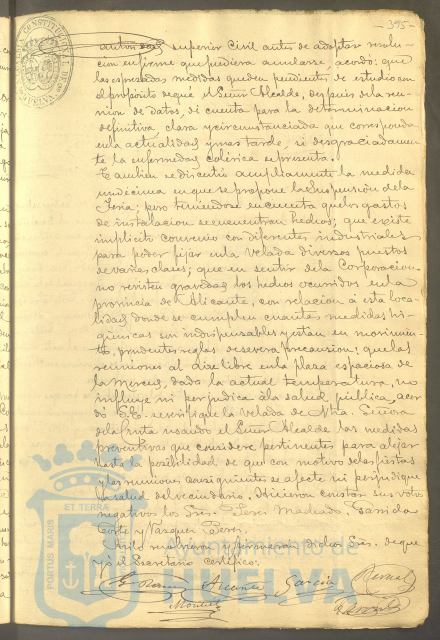 -395-
autoridad superior Civil antes de adoptar resolu-
cion en firme que pudiera anularse, acordó: que
las espresadas medidas queden pendientes de estudio con
el propósito de que el Señor Alcalde, despues de la reu-
nion de datos, dé cuenta para la determinacion
definitiva clara y circunstanciada que corresponda
en la actualidad y mas tarde, si desgraciadamen-
te la enfermedad colérica se presenta.
Tambien se discutió ampliamente la medida
undécima en que se propone la suspension de la
Feria; pero teniendose en cuenta que los gastos
de instalacion se encuentran hechos; que existe
implicito convenio con diferentes industriales
para poder fijar en la velada diversos puestos
de varias clases; que en sentir de la Corporacion
no revisten gravedad los hechos ocurridos en la
provincia de Alicante, con relacion á esta loca-
lidad donde se cumplen cuantas medidas hi-
giénicas son indispensables y estan en movimien-
to, prudentes reglas de severa precaucion: que las
reuniones al aire libre en la plaza espaciosa de
la Merced, dada la actual temperatura, no
influye ni perjudica á la salud pública, acor-
dó S.E. se verifique la velada de Ntra. Señora
de la Cinta usando el Señor Alcalde las medidas
preventivas que considere pertinentes para alejar
hasta la posibilidad de que con motivo de las fiestas
y las reuniones consiguientes se afecte ni perjudique
la salud del vecindario. Hicieron constar sus votos
negativos los Sres. Perez Machado, Garrido
Corte y Vazquez Perez.
Así lo resolvieron y firmaron dichos Sres. de que
yo el Secretario certifico.
Garcia
ET TERRA
PORTUS MARIS
Ayuntamiento de
HUELVA